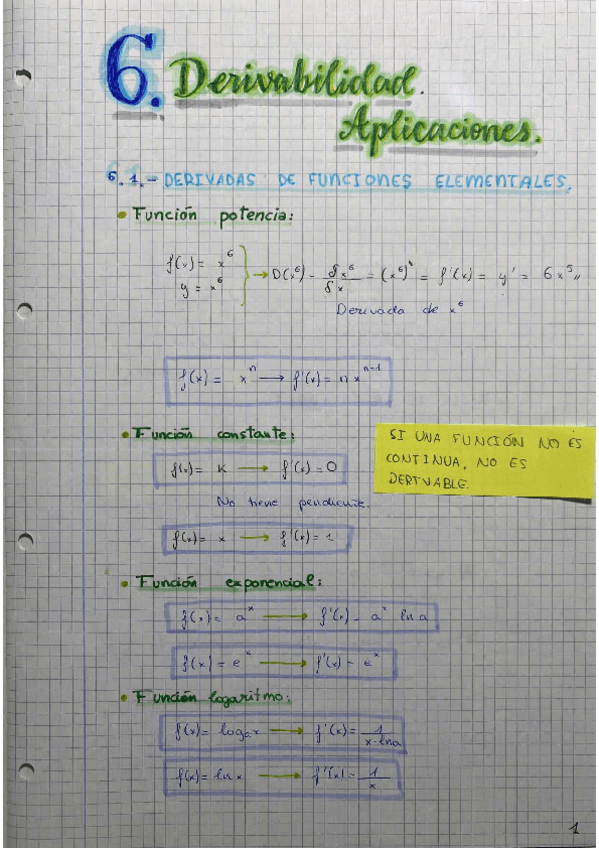 6. Derivabilidad.
Aplicaciones.
6.1.- DERIVADAS DE FUNCIONES ELEMENTALES.
• Función potencia:
f(x) = x⁶
y = x⁶
→ D(x⁶) - δx⁶/δx = (x⁶)' = f'(x) = y' = 6x⁵,,
Derivada de x⁶
f(x) = xⁿ → f'(x) = n xⁿ⁻¹
• Función constante:
f(x) = K → f'(x) = 0
No tiene pendiente.
f(x) = x → f'(x) = 1
SI UNA FUNCIÓN NO ES
CONTINUA, NO ES
DERIVABLE.
• Función exponencial:
f(x) = aˣ → f'(x) - aˣ ln a
f(x) = eˣ → f'(x) - eˣ
• Función logaritmo:
f(x) = logₐx → f'(x) = 1/x·lna
f(x) = ln x → f'(x) = 1/x
1